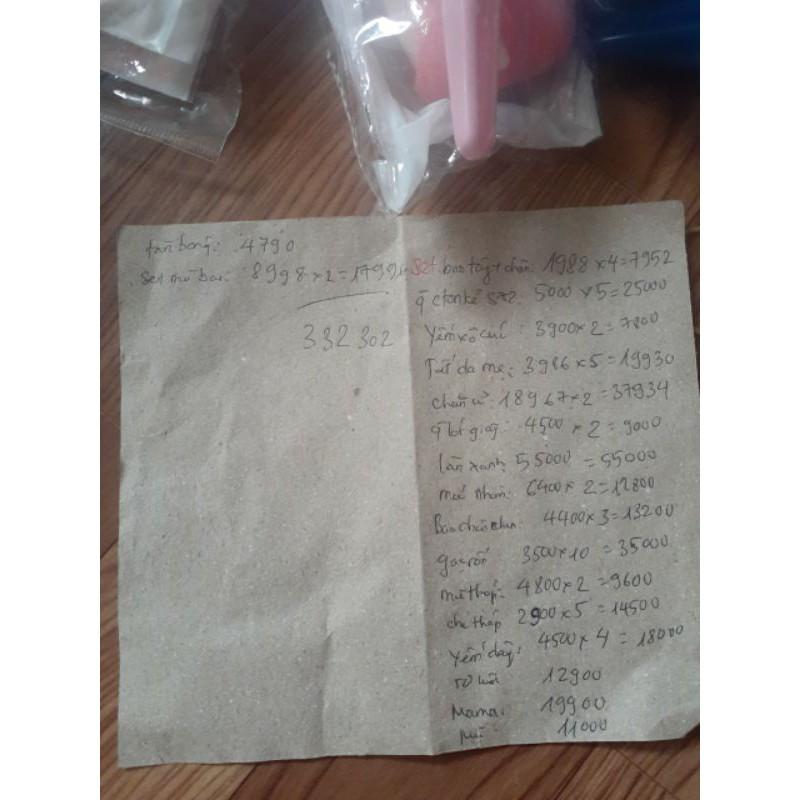 tăm bông: 4790
Set mũ bao: 8998 x 2 = 1799
332 302
Set bao tay + chân: 1988 x 4 = 7952
5000 x 5 = 25000
Yếm xô cúc: 3900 x 2 = 7800
Tút da mẹ: 3986 x 5 = 19930
chăn ủ: 18967 x 2 = 37934
q lót giấy: 4500 x 2 = 9000
lăn xanh 55000 = 55000
mũ nhăn: 6400 x 2 = 12800
Bao chân 4400 x 3 = 13200
gạc rốn 3500 x 10 = 35000
mũ thóp: 4800 x 2 = 9600
che thóp 2900 x 5 = 14500
Yếm dây: 4500 x 4 = 18000
12900
Mama: 19900
11000